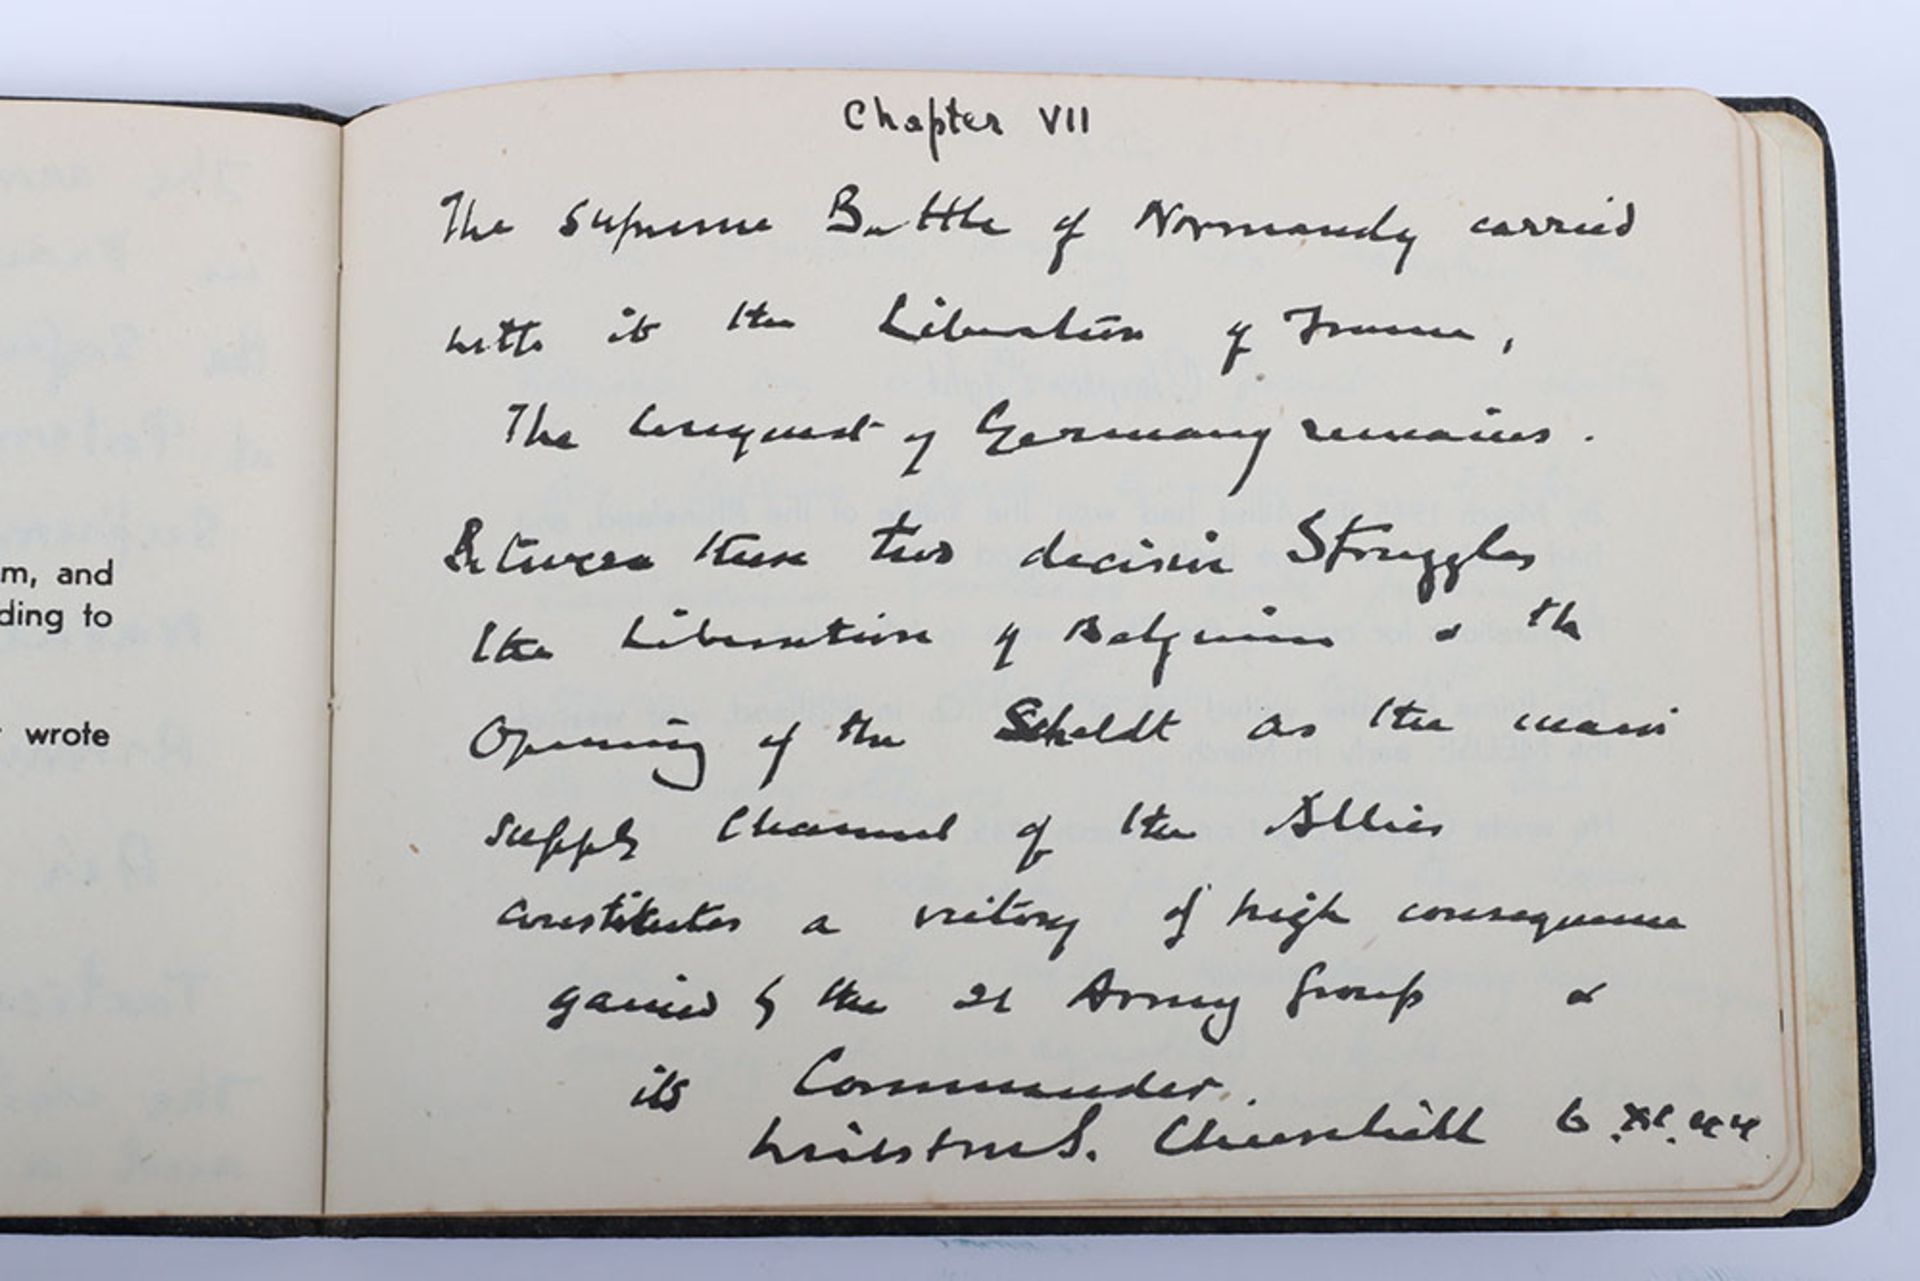 m, and
ding to
wrote
Chapter VII
The Supreme Battle of Normandy carried
with it the Liberation of France,
The Conquest of Germany remains.
Between these two decisive Struggles
the Liberation of Belgium & the
Opening of the Scheldt as the main
supply Channel of the Allies
constitutes a victory of high consequence
gained by the 21 Army Group &
its Commander.
Winston S. Churchill 6.XI.44